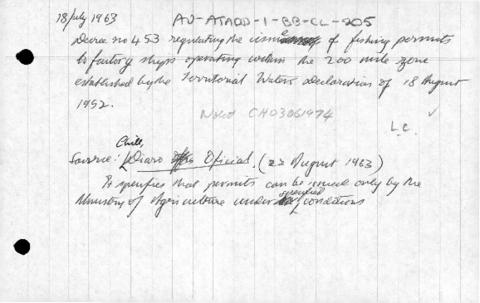 18 July 1963 AU-ATADD-1-BB-CL-205
Decree no 453 regulating the issue of fishing permits
to factory ships operating within the 200 mile zone
established by the Territorial Waters Declaration of 18 August
1952.
Noted CH03061974
L.C.
Chile,
Source: Diaro Oficial, (23 August 1963)
It specifies that permits can be issued only by the
specified
Ministry of Agriculture under conditions